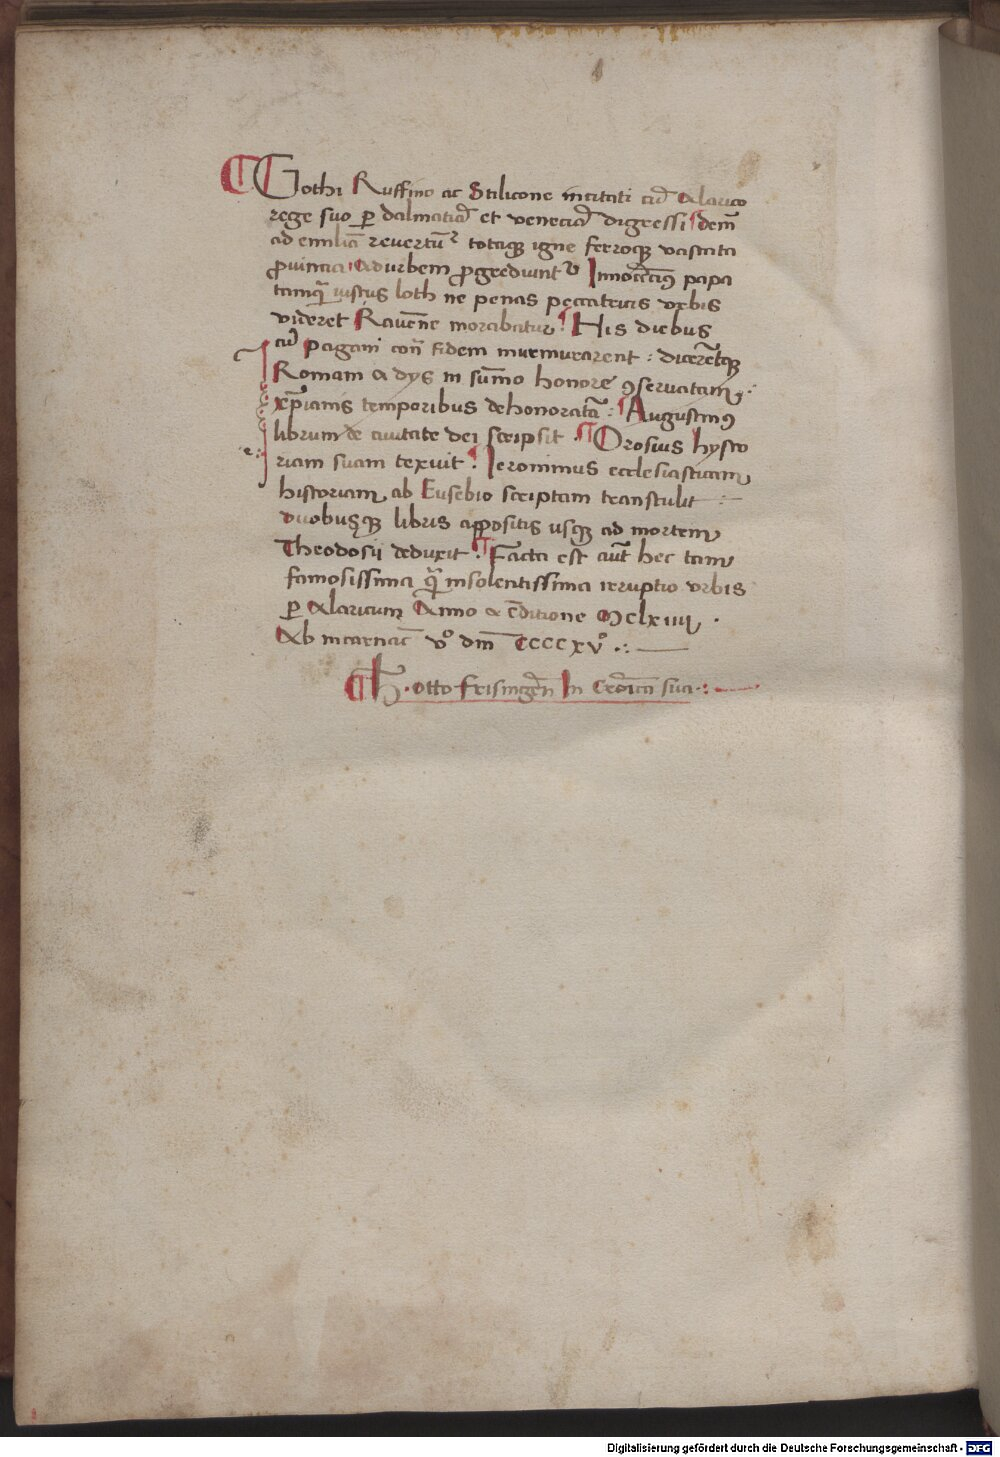 ¶ Gothi Ruffino ac Stilicone incitati cū Alarico
rege suo ꝑ dalmatiā et veneciā digressi ¶ dem̄
ad emiliā revertūt᷑ totaqꝫ igne ferroqꝫ vastata
ꝓvincia Ad urbem ꝓgrediunt᷑ Innocēciꝰ papa
tamqā iustus loth ne penas peccatricis vrbis
videret Ravēne morabatur ¶ His diebus
cū pagani con̄ fidem murmurarent : dicerētqꝫ
Romam a dys in sūmo honore ꝯservatam :
xp̄ianis temporibus dehonoratā : ¶ Augustinꝰ
librum de civitate dei scripsit ¶ Orosius hysto
riam suam texuit : ¶ Ieronimus ecclesiasticam
historiam ab Eusebio scriptam transtulit :
duobusqꝫ libris appositis usqꝫ ad mortem
Theodosii deduxit . ¶ Facta est aūt hec tam
famosissima qā insolentissima irruptio vrbis
ꝑ Alaricum Anno a cōditione Mclxiiii .
Ab incarnac̄ vᵒ dm̄ CCCCxvᵒ .:
¶ H . otto Frisingēn In Crōica sua .:
Digitalisierung gefördert durch die Deutsche Forschungsgemeinschaft - DFG